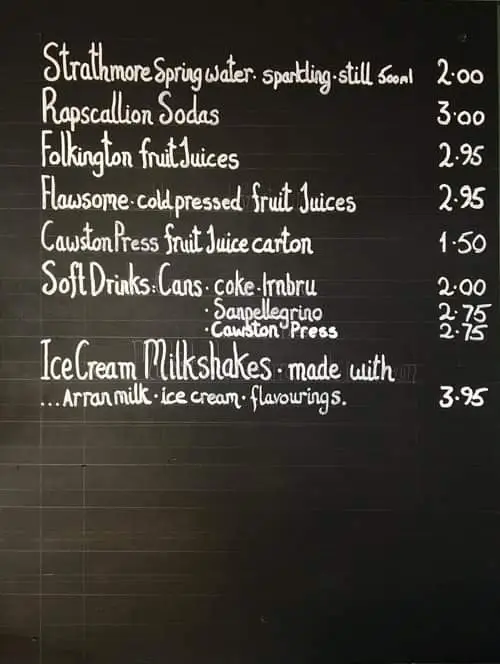 Strathmore Spring water · sparkling · still 500ml 2·00
Rapscallion Sodas 3·00
Folkington fruit Juices 2·95
Flawsome · cold pressed fruit Juices 2·95
Cawston Press fruit Juice carton 1·50
Soft Drinks · Cans · coke · Irnbru 2·00
· Sanpellegrino 2·75
· Cawston Press 2·75
Ice Cream Milkshakes · made with
... Arran milk · ice cream · flavourings. 3·95